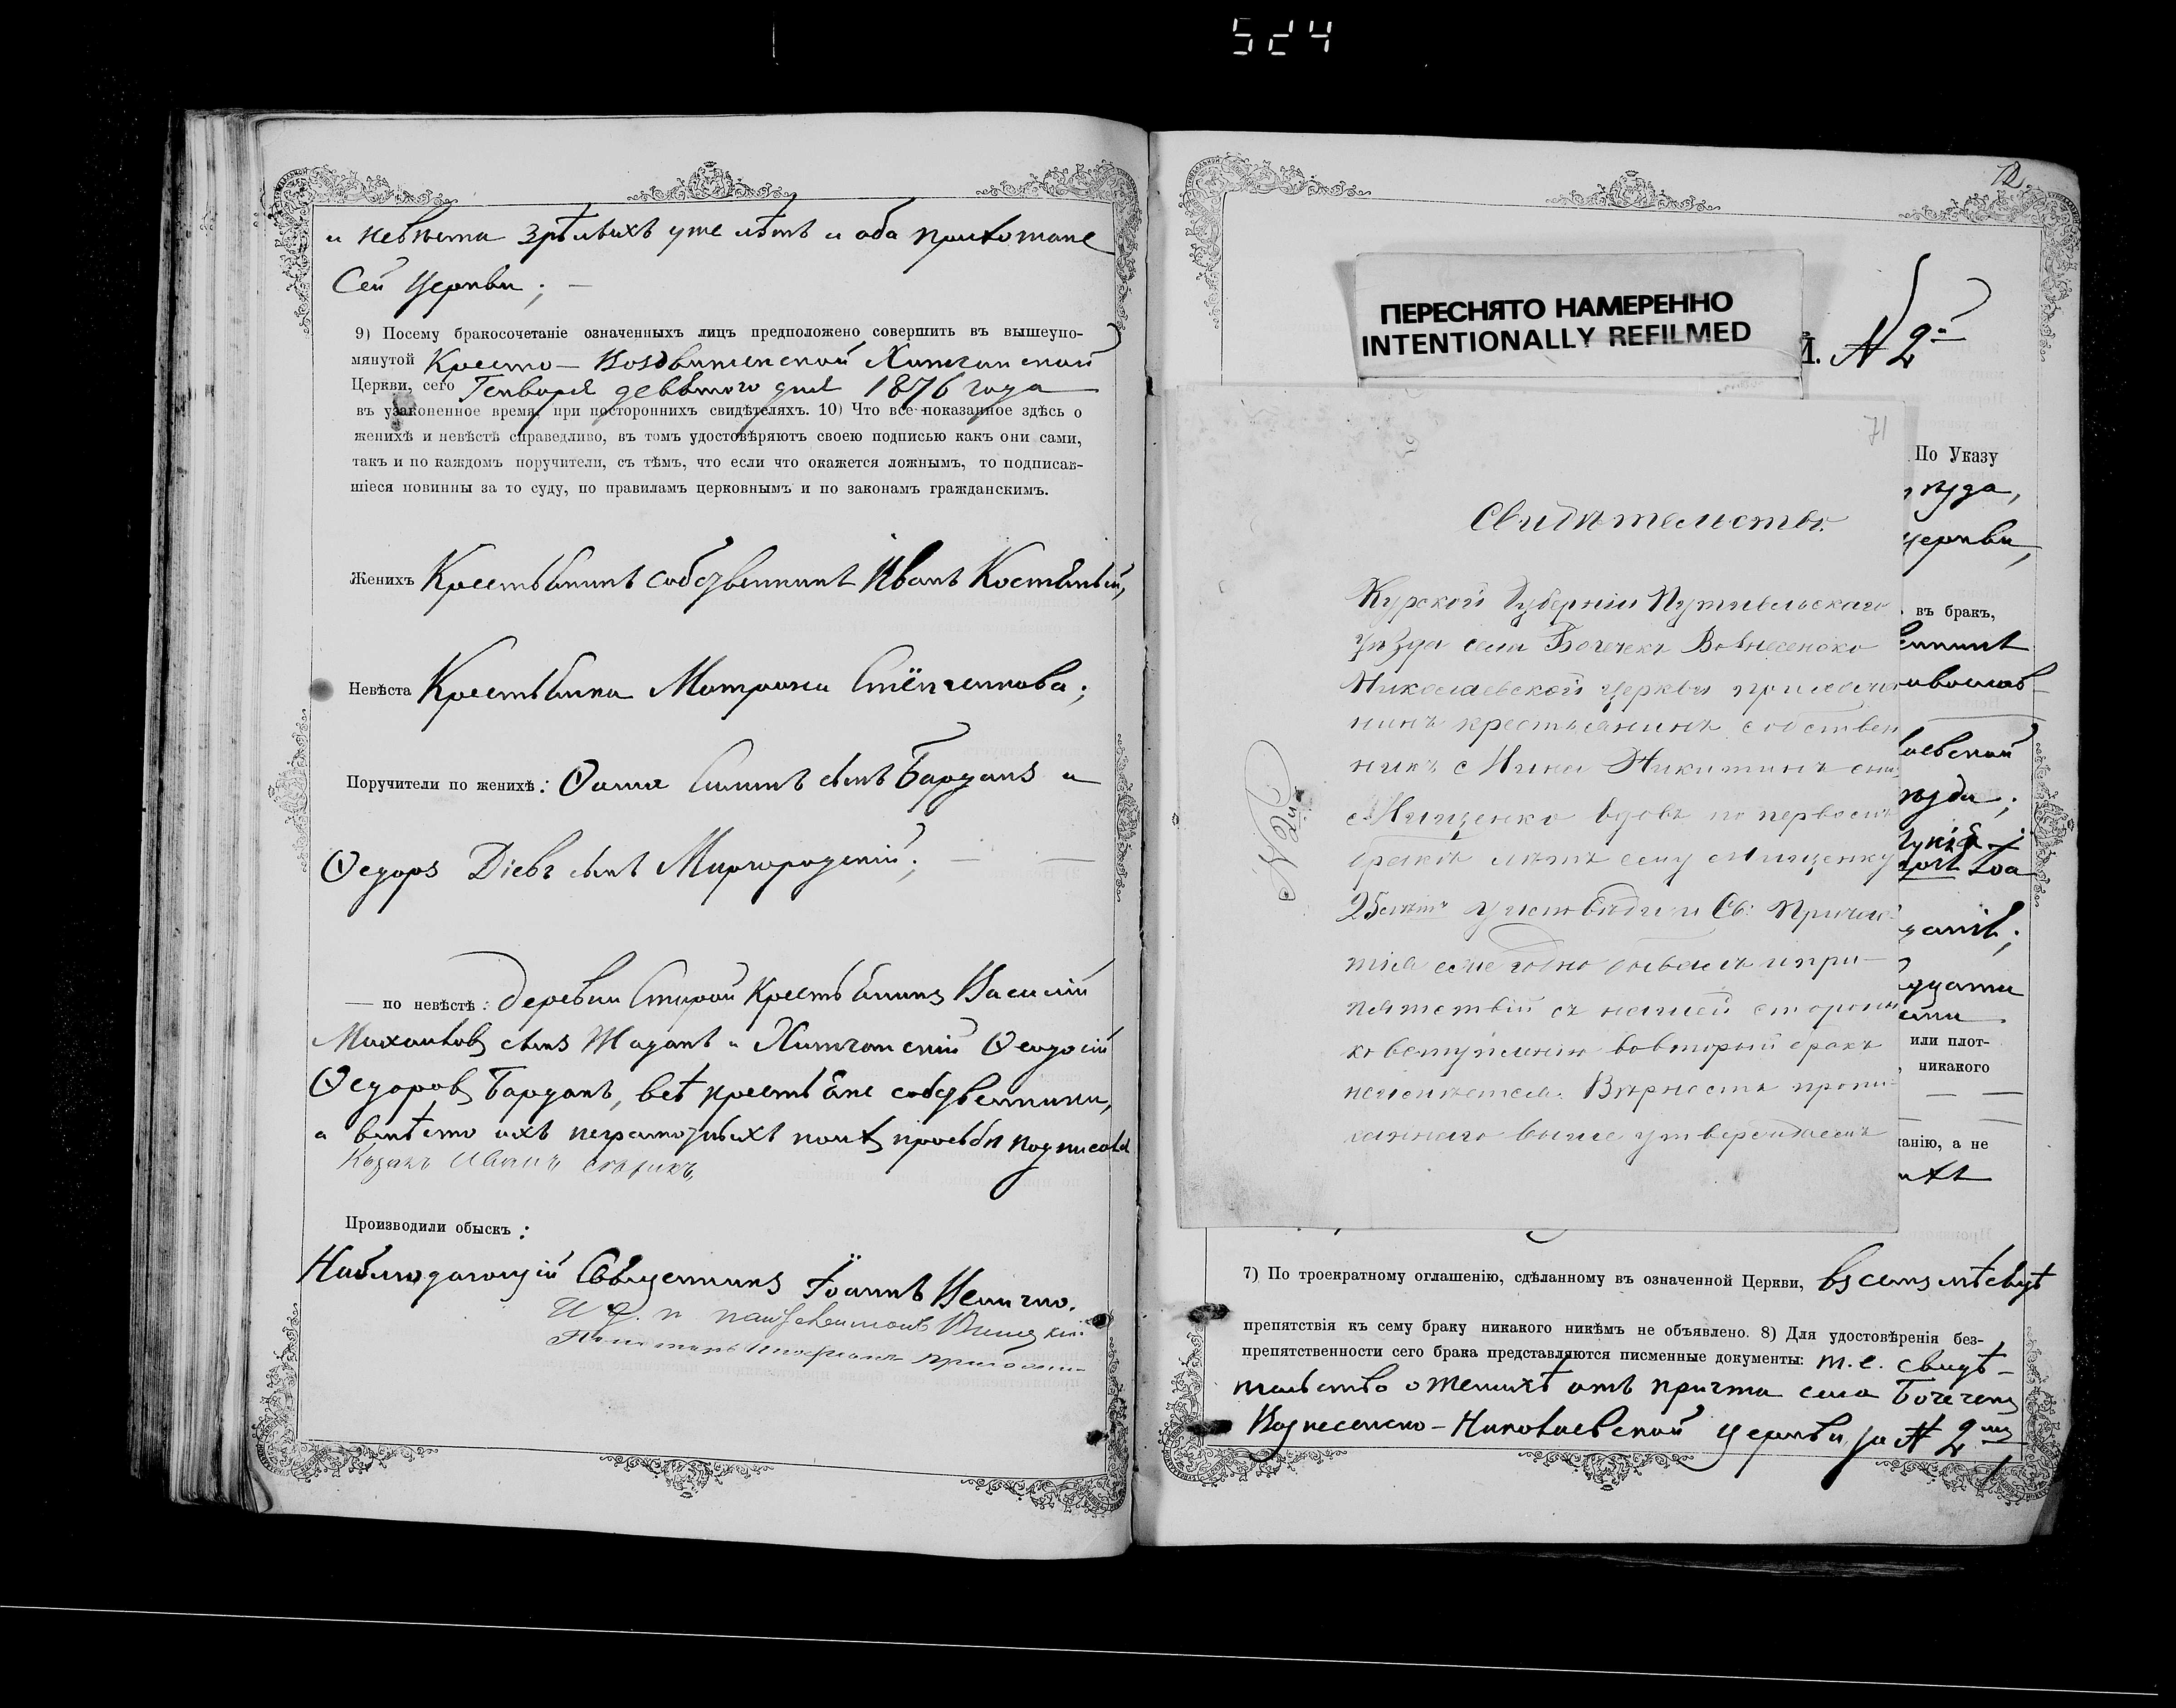 524
и невѣста зрѣлыхъ уже лѣтъ и оба прихожане
Сей Церкви; —
9) Посему бракосочетаніе означенныхъ лицъ предположено совершить въ вышеупо-
мянутой Кресто-Воздвиженской
Церкви, сего Генваря девятого дня 1876 года
въ узаконенное время, при постороннихъ свидѣтеляхъ. 10) Что все показанное здѣсь о
женихѣ и невѣстѣ справедливо, въ томъ удостовѣряютъ своею подписью какъ они сами,
такъ и по каждомъ поручители, съ тѣмъ, что если что окажется ложнымъ, то подписав-
шіеся повинны за то суду, по правиламъ церковнымъ и по законамъ гражданскимъ.
Женихъ Крестьянинъ собственникъ Иванъ
Невѣста Крестьянка Матрона
Поручители по женихѣ: Ѳома сынъ Барданъ и
Ѳедоръ Діевъ сынъ Миргородскій; —
— по невѣстѣ: деревни Старой Крестьянинъ Василій
Михайловъ сынъ Жаданъ и Ѳеодосій
Ѳедоровъ Барданъ, всѣ крестьяне собственники,
а вмѣсто ихъ неграмотныхъ по ихъ просьбѣ подписался
Козакъ Иванъ
Производили обыскъ:
Наблюдающій Священникъ Іоаннъ Величко.
И. д.
Пономарь
12
ПЕРЕСНЯТО НАМЕРЕННО
INTENTIONALLY REFILMED
№ 2й
71
Свидѣтельство.
Курской Губерніи Путивльскаго
уѣзда села Бочечекъ Вознесенско
Николаевской церкви прихожа
нинъ крестьянинъ собствен
никъ Мина Никитинъ сынъ
Мищенко вдовъ по первомъ
бракѣ лѣтъ ему Мищенку
25 лѣтъ у исповѣди и Св. Прича-
тія ежегодно бывалъ и пре-
пятствій съ нашей стороны
ко вступленію во вторый бракъ
неимѣется. Вѣрность пропи-
саннаго выше утверждаемъ
№ 2й
По Указу
ѣзда,
церкви,
въ бракъ,
енникъ
авослав-
аевской
ѣзда;
или плот-
никакого
анію, а не
ихъ
7) По троекратному оглашенію, сдѣланному въ означенной Церкви, въ семъ мѣсяцѣ
препятствія къ сему браку никакого никѣмъ не объявлено. 8) Для удостовѣренія без-
препятственности сего брака представляются писменные документы: т. е. свидѣ-
тельство о женихѣ отъ причта села Бочечекъ
Вознесенско-Николаевской церкви за № 2мъ